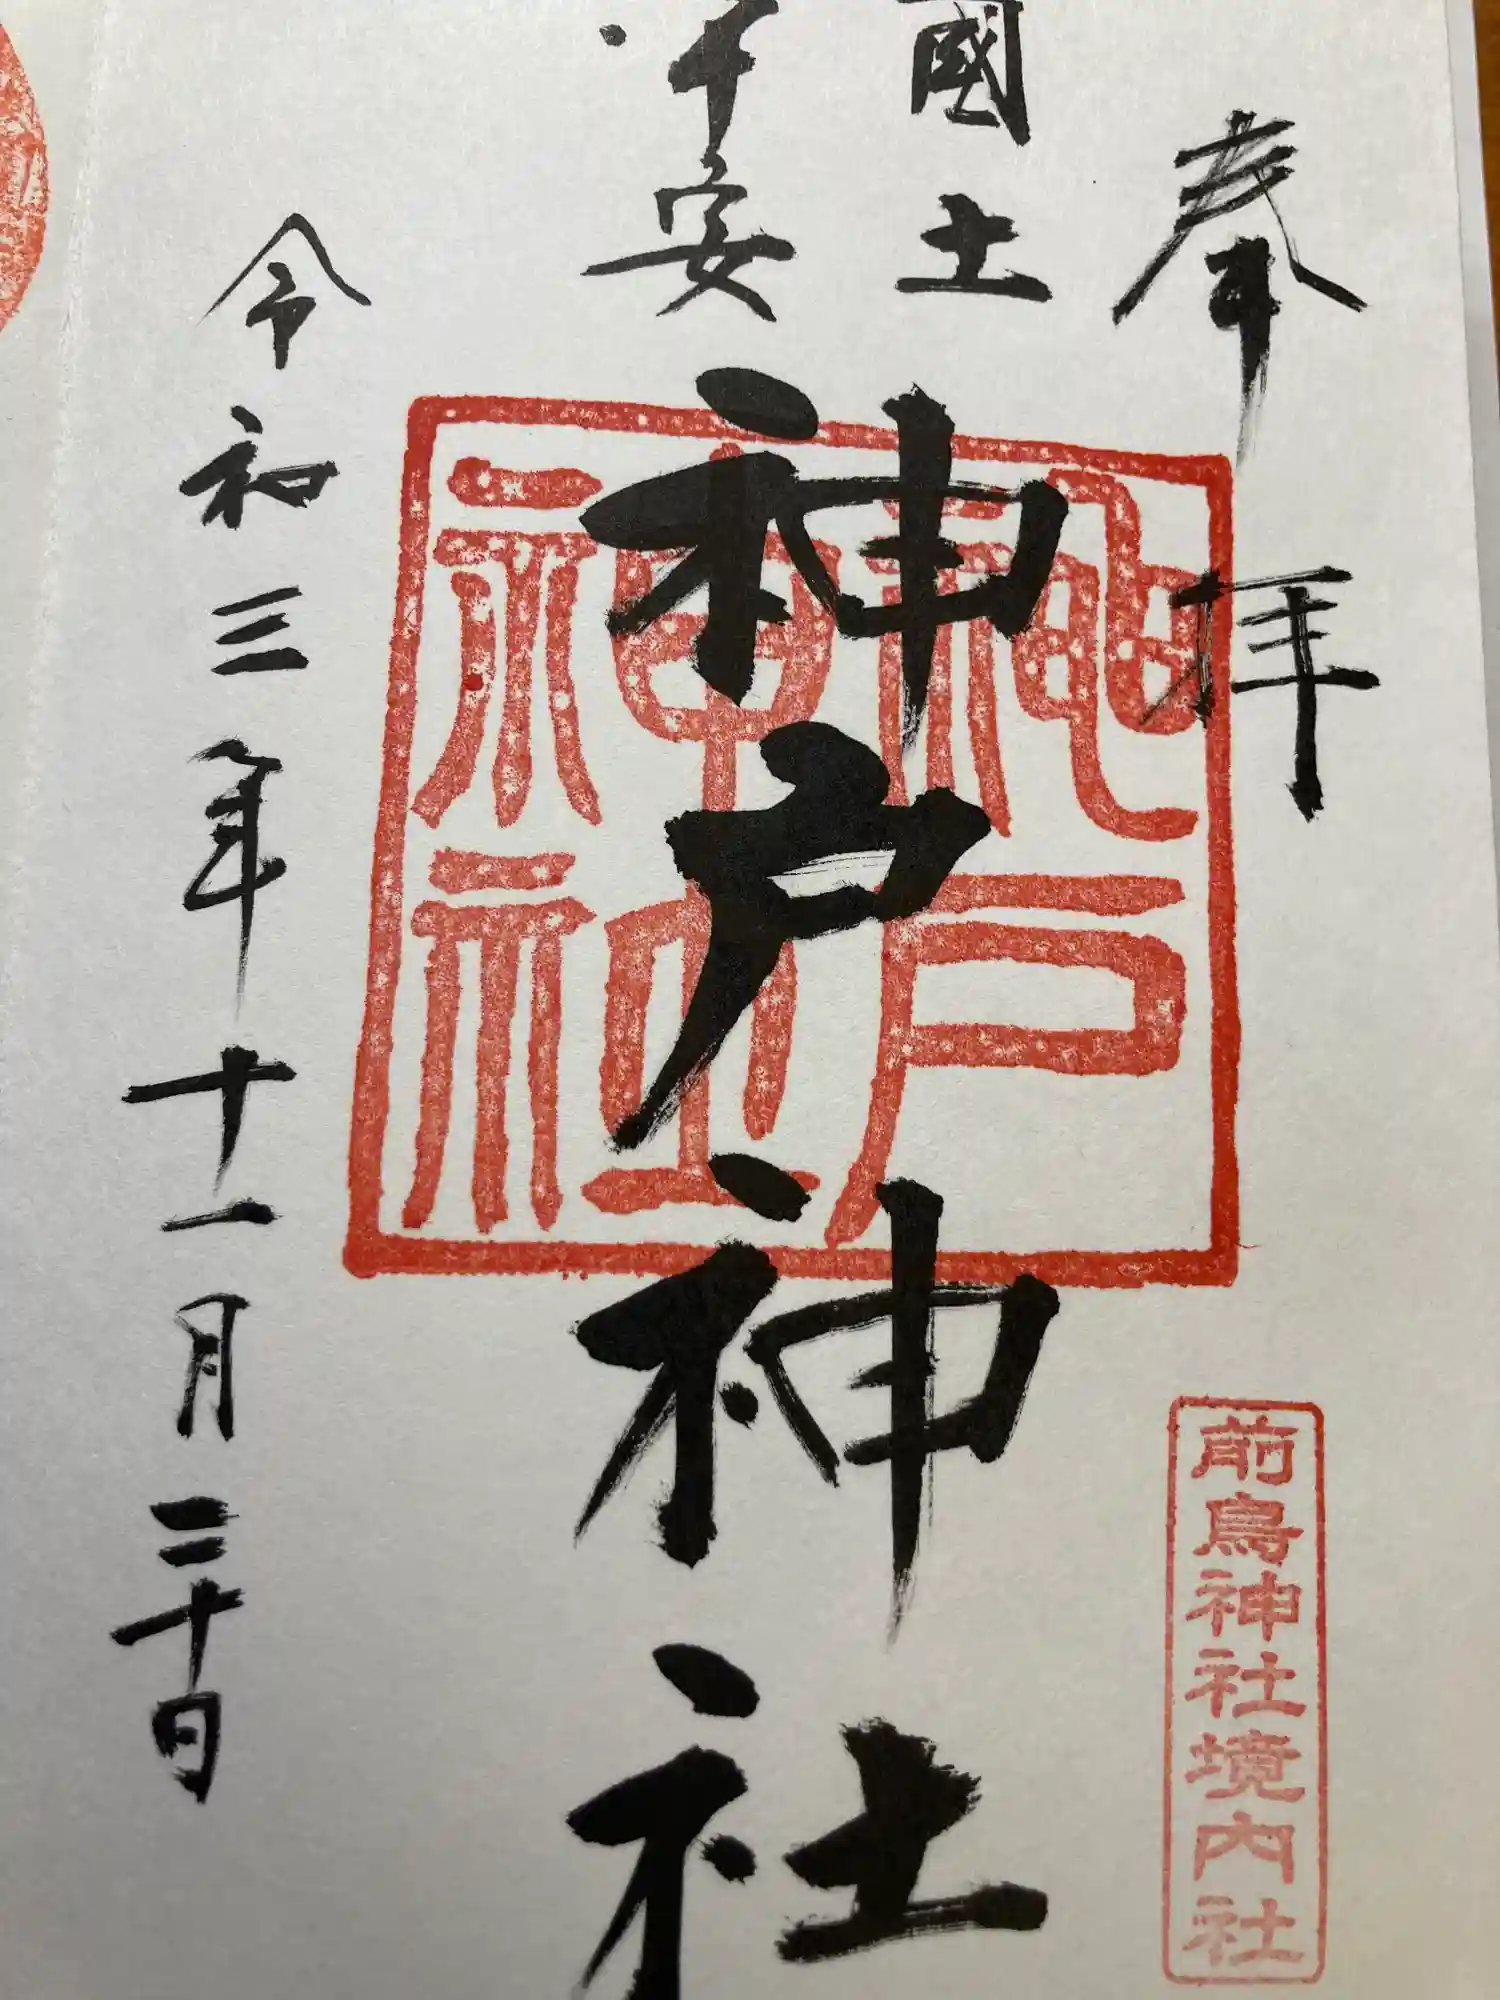 奉拝
國土
平安
神戸神社
令和三年十一月二十日
神戸
神社
前鳥神社境内社